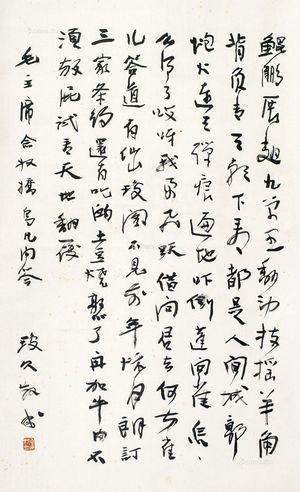 鲲鹏展翅九万里翻动扶摇羊角
背负青天朝下看都是人间城郭
炮火连天弹痕遍地吓倒蓬间雀怎
么得了哎呀我要飞跃借问君去何方雀
儿答道有仙山琼阁不见前年秋月朗訂
三家条约还有吃的土豆烧熟了再加牛肉不
须放屁试看天地翻覆
毛主席念奴娇鸟儿问答